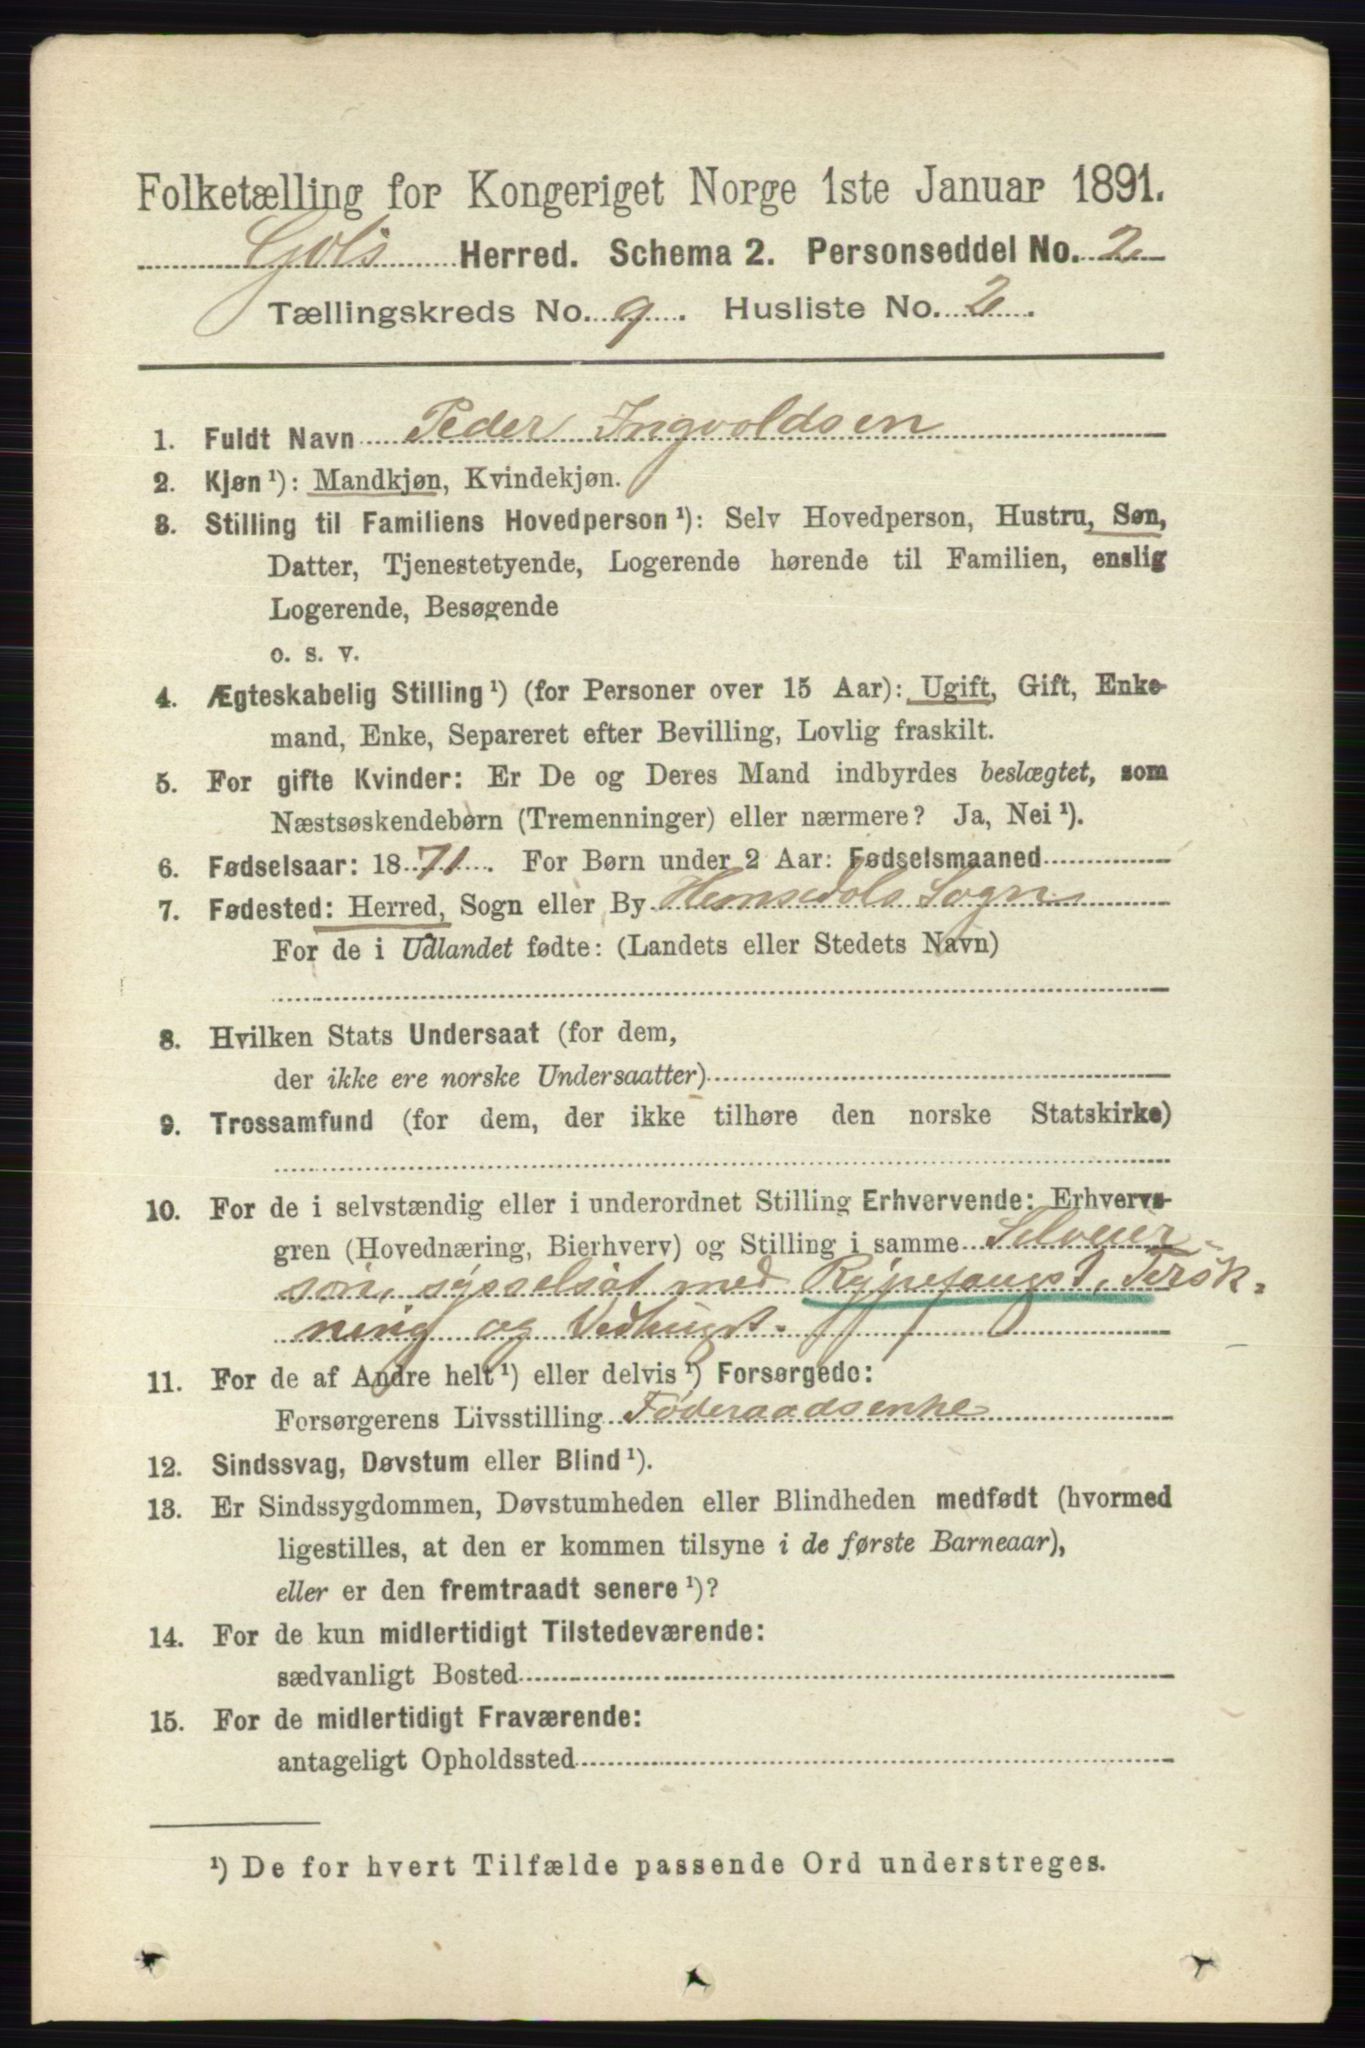 Folketælling for Kongeriget Norge 1ste Januar 1891.
Gols Herred. Schema 2. Personseddel No. 2
Tællingskreds No. 9. Husliste No. 2.
1. Fuldt Navn Peder Ingvoldsen
2. Kjøn ¹): Mandkjøn, Kvindekjøn.
3. Stilling til Familiens Hovedperson ¹): Selv Hovedperson, Hustru, Søn,
Datter, Tjenestetyende, Logerende hørende til Familien, enslig
Logerende, Besøgende
o. s. v.
4. Ægteskabelig Stilling ¹) (for Personer over 15 Aar): Ugift, Gift, Enke-
mand, Enke, Separeret efter Bevilling, Lovlig fraskilt.
5. For gifte Kvinder: Er De og Deres Mand indbyrdes beslægtet, som
Næstsøskendebørn (Tremenninger) eller nærmere? Ja, Nei ¹).
6. Fødselsaar: 1871. For Børn under 2 Aar: Fødselsmaaned
7. Fødested: Herred, Sogn eller By Hemsedals Sogn
For de i Udlandet fødte: (Landets eller Stedets Navn)
8. Hvilken Stats Undersaat (for dem,
der ikke ere norske Undersaatter)
9. Trossamfund (for dem, der ikke tilhøre den norske Statskirke)
10. For de i selvstændig eller i underordnet Stilling Erhvervende: Erhvervs-
gren (Hovednæring, Bierhverv) og Stilling i samme Selveier-
søn, sysselsat med Rypefangst, Tersk-
ning og Vedhugst.
11. For de af Andre helt ¹) eller delvis ¹) Forsørgede:
Forsørgerens Livsstilling Føderaadsenke
12. Sindssvag, Døvstum eller Blind ¹).
13. Er Sindssygdommen, Døvstumheden eller Blindheden medfødt (hvormed
ligestilles, at den er kommen tilsyne i de første Barneaar),
eller er den fremtraadt senere ¹)?
14. For de kun midlertidigt Tilstedeværende:
sædvanligt Bosted
15. For de midlertidigt Fraværende:
antageligt Opholdssted
¹) De for hvert Tilfælde passende Ord understreges.